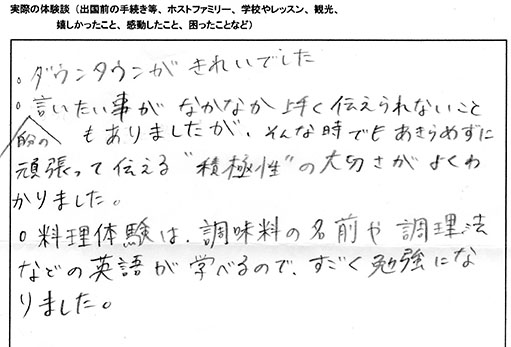 実際の体験談(出国前の手続き等、ホストファミリー、学校やレッスン、観光、
嬉しかったこと、感動したこと、困ったことなど)
○ダウンタウンがきれいでした
○言いたい事がなかなか上手く伝えられないこと
自分の
もありましたが、そんな時でもあきらめずに
頑張って伝える"積極性"の大切さがよくわ
かりました。
○料理体験は、調味料の名前や調理法
などの英語が学べるので、すごく勉強にな
りました。